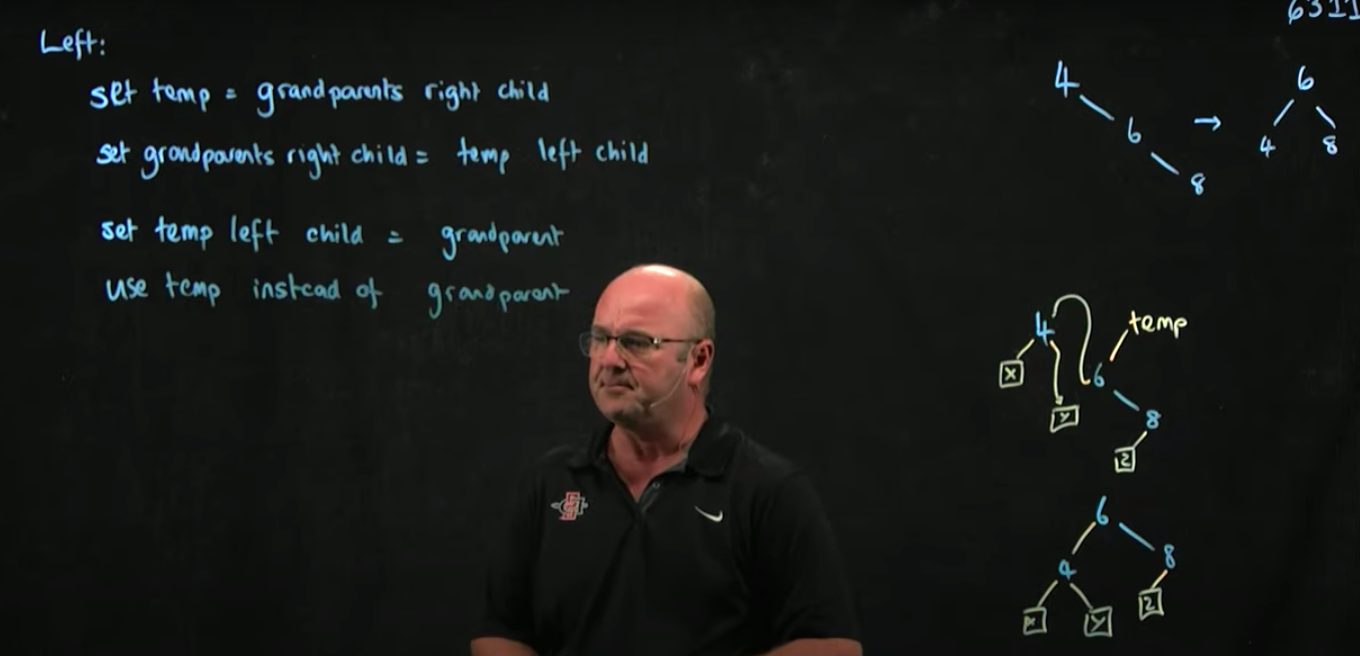 Left:
set temp = grandparents right child
set grandparents right child = temp left child
set temp left child = grandparent
use temp instead of grandparent
6311
4
6
8
→
6
4 8
4
temp
x
6
y
8
2
6
4 8
x y 2